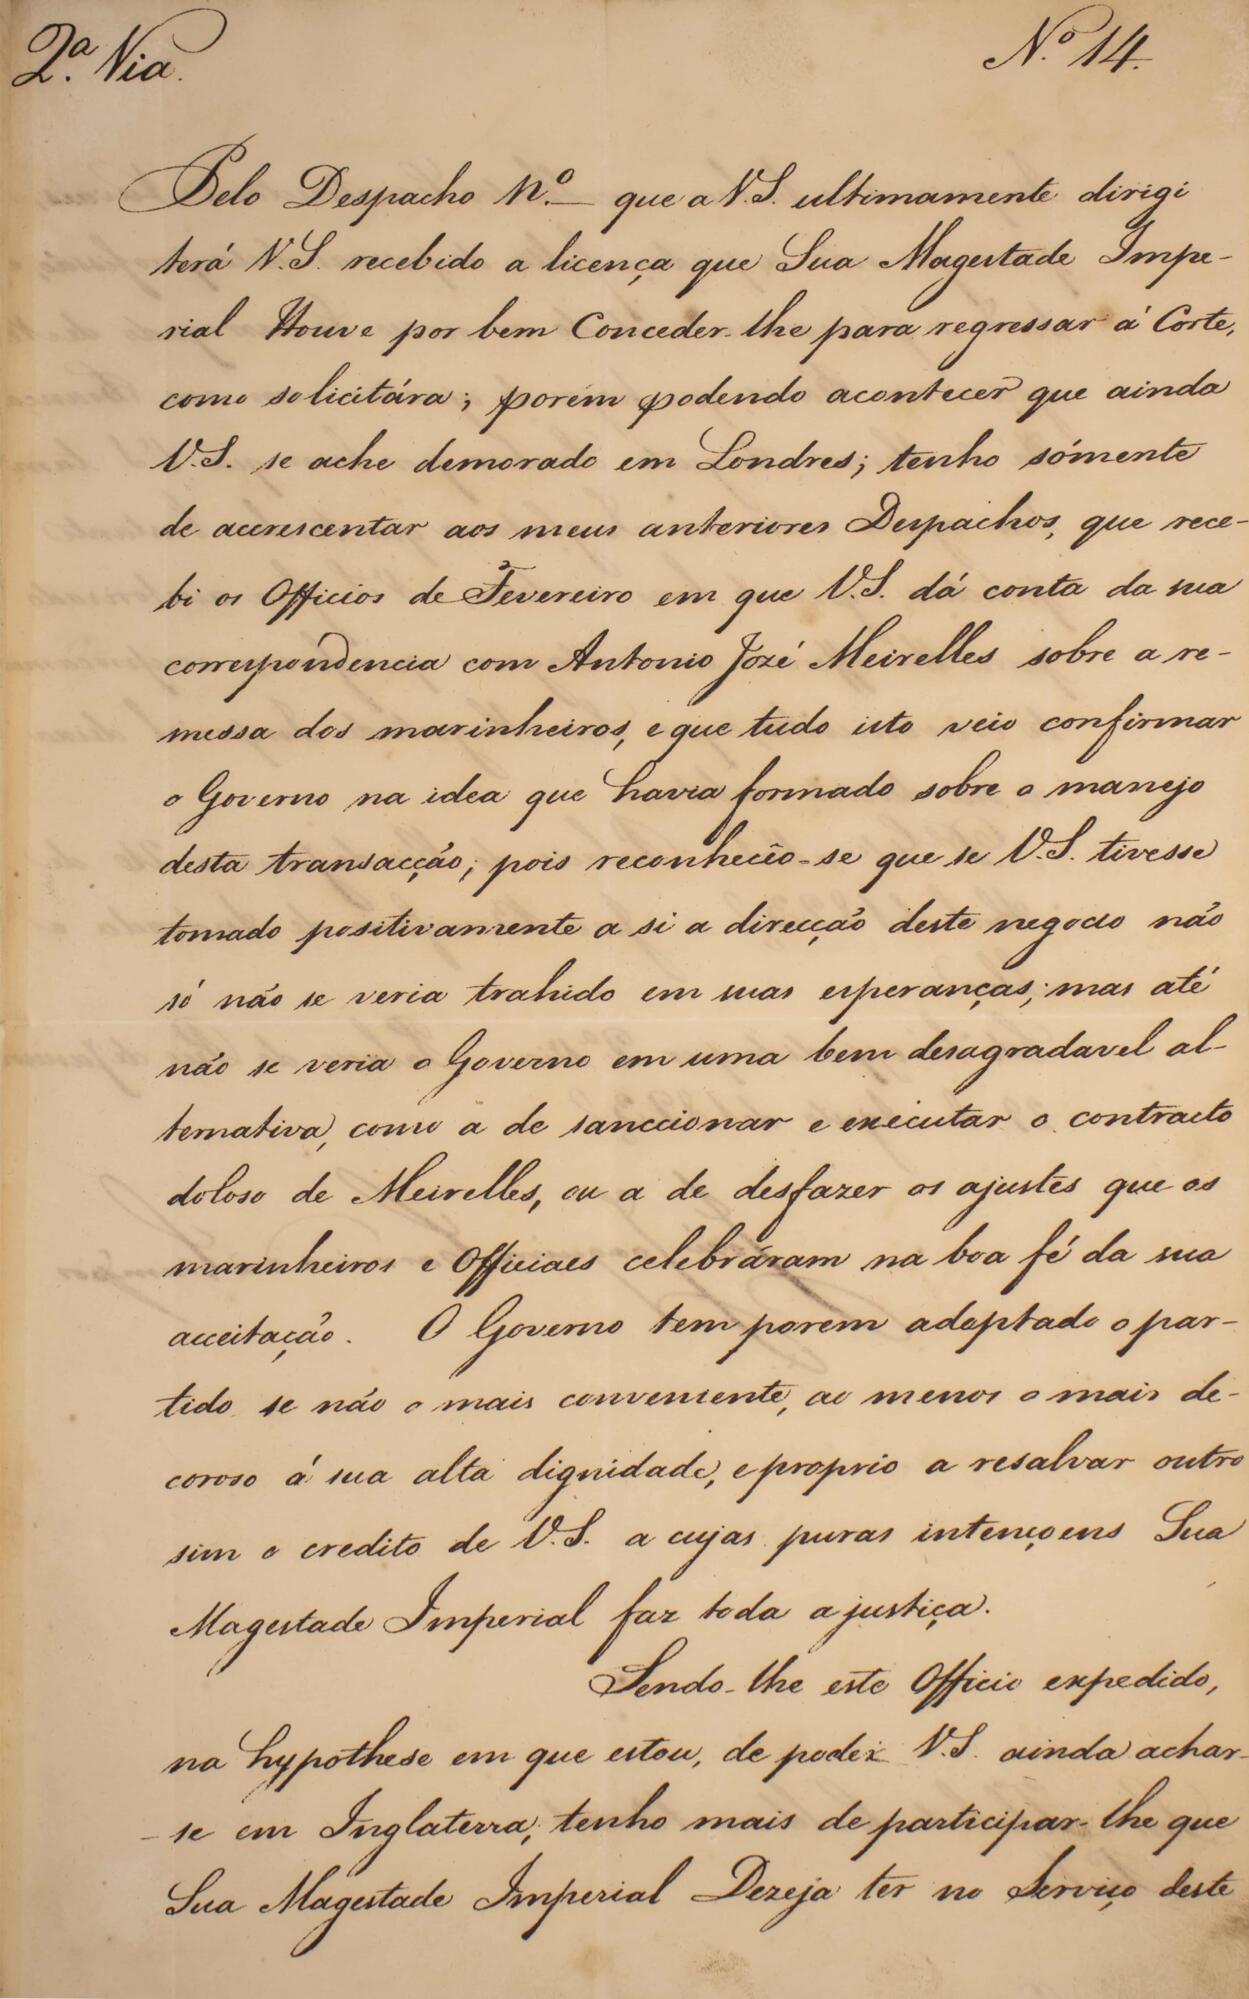 2.ª Via.
N.º 14.
Pelo Despacho N.º — que a V.S. ultimamente dirigi
terá V.S. recebido a licença que Sua Magestade Impe-
rial Houve por bem Conceder-lhe para regressar á Corte,
como solicitára; porém podendo acontecer que ainda
V.S. se ache demorado em Londres; tenho sómente
de accrescentar aos meus anteriores Despachos, que rece-
bi os Officios de Fevereiro em que V.S. dá conta da sua
correspondencia com Antonio Jozé Meirelles sobre a re-
messa dos marinheiros, e que tudo isto veio confirmar
o Governo na idea que havia formado sobre o manejo
desta transacção; pois reconhecêo-se que se V.S. tivesse
tomado positivamente a si a direcção deste negocio não
só não se veria trahido em suas esperanças; mas até
não se veria o Governo em uma bem desagradavel al-
ternativa, como a de sanccionar e executar o contracto
doloso de Meirelles, ou a de desfazer os ajustes que os
marinheiros e Officiaes celebráram na boa fé da sua
acceitação. O Governo tem porem adoptado o par-
tido se não o mais conveniente, ao menos o mais de-
coroso á sua alta dignidade, e proprio a resalvar outro
sim o credito de V.S. a cujas puras intençoens Sua
Magestade Imperial faz toda a justiça.
Sendo-lhe este Officio expedido,
na hypothese em que estou, de poder V.S. ainda achar-
-se em Inglaterra; tenho mais de participar-lhe que
Sua Magestade Imperial Dezeja ter no Serviço deste